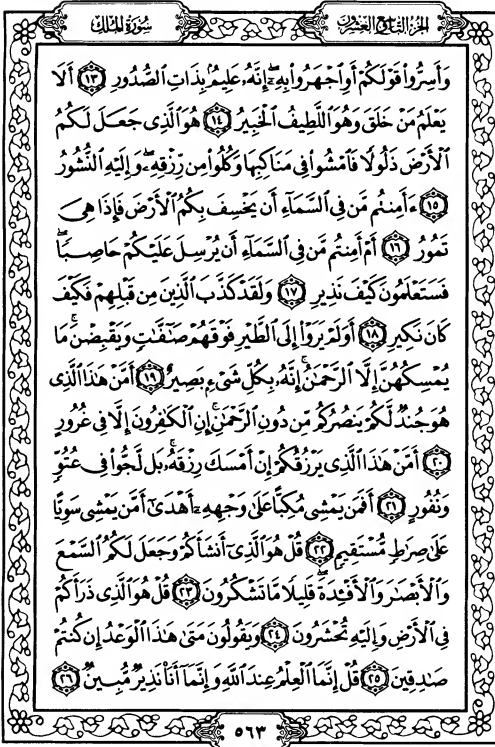 الجزء التاسع والعشرون
سورة الملك
وَأَسِرُّوا۟ قَوْلَكُمْ أَوِ ٱجْهَرُوا۟ بِهِۦٓ ۖ إِنَّهُۥ عَلِيمٌۢ بِذَاتِ ٱلصُّدُورِ ١٣ أَلَا
يَعْلَمُ مَنْ خَلَقَ وَهُوَ ٱللَّطِيفُ ٱلْخَبِيرُ ١٤ هُوَ ٱلَّذِى جَعَلَ لَكُمُ
ٱلْأَرْضَ ذَلُولًا فَٱمْشُوا۟ فِى مَنَاكِبِهَا وَكُلُوا۟ مِن رِّزْقِهِۦ ۖ وَإِلَيْهِ ٱلنُّشُورُ
١٥ ءَأَمِنتُم مَّن فِى ٱلسَّمَآءِ أَن يَخْسِفَ بِكُمُ ٱلْأَرْضَ فَإِذَا هِىَ
تَمُورُ ١٦ أَمْ أَمِنتُم مَّن فِى ٱلسَّمَآءِ أَن يُرْسِلَ عَلَيْكُمْ حَاصِبًا ۖ
فَسَتَعْلَمُونَ كَيْفَ نَذِيرِ ١٧ وَلَقَدْ كَذَّبَ ٱلَّذِينَ مِن قَبْلِهِمْ فَكَيْفَ
كَانَ نَكِيرِ ١٨ أَوَلَمْ يَرَوْا۟ إِلَى ٱلطَّيْرِ فَوْقَهُمْ صَٰٓفَّٰتٍ وَيَقْبِضْنَ ۚ مَا
يُمْسِكُهُنَّ إِلَّا ٱلرَّحْمَٰنُ ۚ إِنَّهُۥ بِكُلِّ شَىْءٍۭ بَصِيرٌ ١٩ أَمَّنْ هَٰذَا ٱلَّذِى
هُوَ جُندٌ لَّكُمْ يَنصُرُكُم مِّن دُونِ ٱلرَّحْمَٰنِ ۚ إِنِ ٱلْكَٰفِرُونَ إِلَّا فِى غُرُورٍ
٢٠ أَمَّنْ هَٰذَا ٱلَّذِى يَرْزُقُكُمْ إِنْ أَمْسَكَ رِزْقَهُۥ ۚ بَل لَّجُّوا۟ فِى عُتُوٍّ
وَنُفُورٍ ٢١ أَفَمَن يَمْشِى مُكِبًّا عَلَىٰ وَجْهِهِۦٓ أَهْدَىٰٓ أَمَّن يَمْشِى سَوِيًّا
عَلَىٰ صِرَٰطٍ مُّسْتَقِيمٍ ٢٢ قُلْ هُوَ ٱلَّذِىٓ أَنشَأَكُمْ وَجَعَلَ لَكُمُ ٱلسَّمْعَ
وَٱلْأَبْصَٰرَ وَٱلْأَفْـِٔدَةَ ۖ قَلِيلًا مَّا تَشْكُرُونَ ٢٣ قُلْ هُوَ ٱلَّذِى ذَرَأَكُمْ
فِى ٱلْأَرْضِ وَإِلَيْهِ تُحْشَرُونَ ٢٤ وَيَقُولُونَ مَتَىٰ هَٰذَا ٱلْوَعْدُ إِن كُنتُمْ
صَٰدِقِينَ ٢٥ قُلْ إِنَّمَا ٱلْعِلْمُ عِندَ ٱللَّهِ وَإِنَّمَآ أَنَا۠ نَذِيرٌ مُّبِينٌ ٢٦
٥٦٣